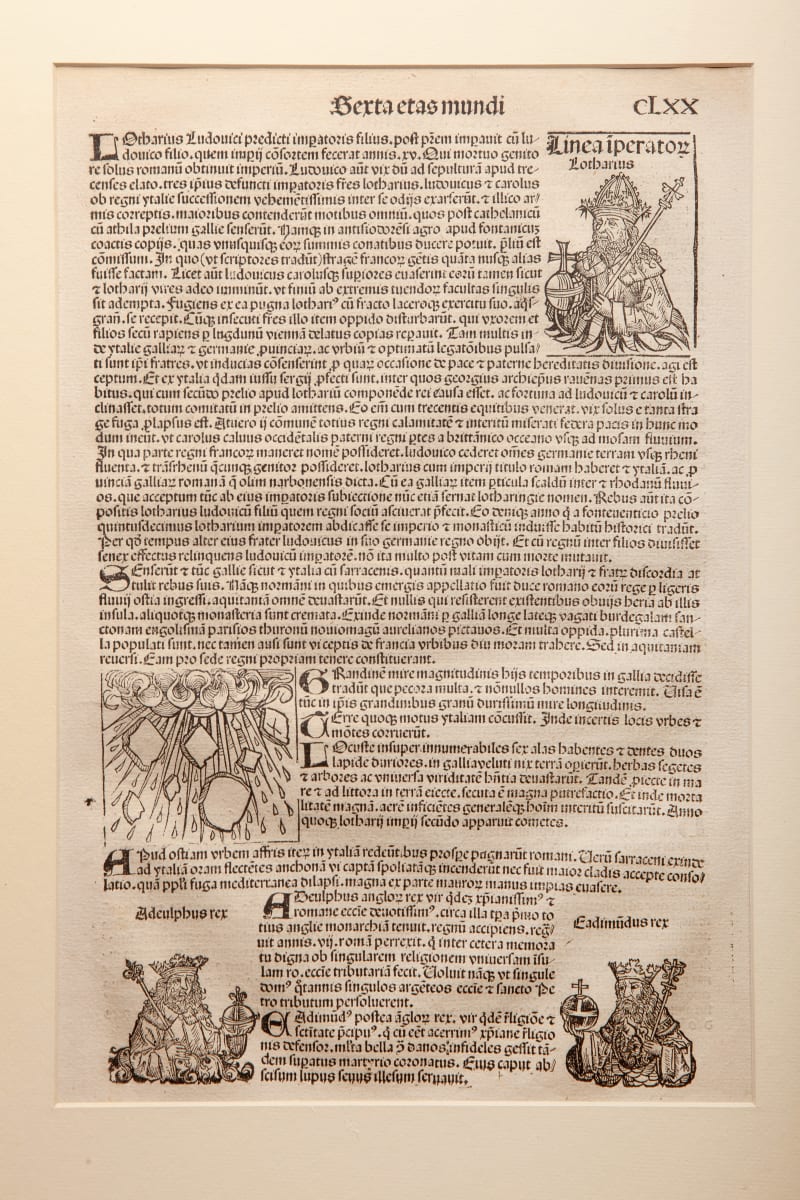 Sexta etas mundi CLXX
Linea īperatoꝝ
Lotharius
LOtharius Ludouici predicti imꝑatoris filius. post pr̄em imꝑauit cū lu-
douico filio. quem imꝑij cōsortem fecerat annis. xv. Qui mortuo genito
re solus romanū obtinuit imperiū. Ludouico aūt vix dū ad sepulturā apud tre-
censes elato. tres ip̄ius defuncti imꝑatoris fr̄es lotharius. ludouicus ⁊ carolus
ob regni ytalie successionem vehemētissimis inter se odijs exarserūt. ⁊ illico ar/
mis correptis. maioribus contenderūt motibus omniū. quos post cathelanicū
cū athila prelium gallie senserūt. Namqꝫ in antisiodorēsi agro apud fontanicuꝫ
coactis copijs. quas vnusquisqꝫ eoꝝ summis conatibus ducere potuit. p̄liū est
cōmissum. In quo (vt scriptores tradūt) stragē francoꝝ gētis quāta nusqꝫ alias
fuisse factam. Licet aūt ludouicus carolusqꝫ suꝑiores euaserint eorū tamen sicut
⁊ lotharij vires adeo imminūt. vt finiū ab extremis tuendoꝝ facultas singulis
sit adempta. Fugiens ex ea pugna lotharꝰ cū fracto laceroqꝫ exercitu suo. aq̄s-
gran̄. se recepit. Cūqꝫ insecuti fr̄es illo item oppido disturbarūt. qui vxorem et
filios secū rapiens ꝑ lugdunū viennā delatus copias reꝑauit. Tam multis in-
de ytalie galliaꝝ ⁊ germanie ꝓuinciaꝝ. ac vrbiū ⁊ optimatū legatōibus pulsa/
ti sunt ip̄i fratres. vt inducias cōsenserint ꝓ quaꝝ occasione de pace ⁊ paterne hereditatis diuisione. agi est
ceptum. Et ex ytalia q̄dam iussu sergij ꝓfecti sunt. inter quos georgius archiep̄us rauēnas primus est ha
bitus. qui cum secūdo prelio apud lothariū componēde rei causa esset. ac fortuna ad ludouicū ⁊ carolū in-
clinasset. totum comitatū in prelio amittens. Eo em̄ cum trecentis equitibus venerat. vix solus e tanta stra
ge fuga ꝓlapsus est. Atuero ij cōmunē totius regni calamitatē ⁊ interitū miserati federa pacis in hunc mo
dum ineūt. vt carolus caluus occidētalis paterni regni ꝑtes a brittānico occeano vsqꝫ ad mosam fluuium.
In qua parte regni francoꝝ maneret nomē possideret. ludouico cederet om̄es germanie terram vsqꝫ rheni
fluenta. ⁊ trāsrhenū q̄cunqꝫ genitor possideret. lotharius cum imperij titulo romam haberet ⁊ ytaliā. ac ꝓ
uinciā galliaꝝ romanā q̄ olim narbonensis dicta. Cū ea galliaꝝ item ꝑticula scaldū inter ⁊ rhodanū fluui-
os. que acceptum tūc ab eius imꝑatoris subiectione nūc etiā seruat lotharingie nomen. Rebus aūt ita cō-
positis lotharius ludouicū filiū quem regni sociū asciuerat p̄fecit. Eo deniqꝫ anno q̄ a fonteuenticio prelio
quintusdecimus lotharium imꝑatorem abdicasse se imperio ⁊ monasticū induisse habitū historici tradūt.
Per qd̄ tempus alter eius frater ludouicus in suo germanie regno obijt. Et cū regnū inter filios diuisisset
senex effectus relinquens ludouicū imꝑatorē. nō ita multo post vitam cum morte mutauit.
SEnserūt ⁊ tūc gallie sicut ⁊ ytalia cū sarracenis. quantū mali imꝑatoris lotharij ⁊ fratꝝ discordia at
tulit rebus suis. Nāqꝫ normāni in quibus emergis appellatio fuit duce romano eorū rege ꝑ ligeris
fluuij ostia ingressi. aquitaniā omnē deuastarūt. Et nullis qui resisterent existentibus obuijs heria ab illis
insula. aliquotqꝫ monasteria sunt cremata. Exinde normāni ꝑ galliā longe lateqꝫ vagati burdegalam san-
ctonam engolismā parisios thuronū nouiomagū aurelianos pictauos. Et multa oppida. plurima castel-
la populati sunt. nec tamen ausi sunt vi ceptis de francia vrbibus diu moram trahere. Sed in aquitaniam
reuersi. Eam pro sede regni propriam tenere constituerant.
GRandinē mire magnitudinis hijs temporibus in gallia decidisse
tradūt que pecora multa. ⁊ nōnullos homines interemit. Uisa ē
tūc in ip̄is grandinibus granū durissimū mire longitudinis.
TErre quoqꝫ motus ytaliam cōcussit. Inde incertis locis vrbes ⁊
mōtes corruerūt.
LOcuste insuper innumerabiles sex alas habentes ⁊ dentes duos
lapide duriores. in galliā veluti nix terrā opierūt. herbas segetes
⁊ arbores ac vniuersa viriditatē hn̄tia deuastarūt. Tandē ꝓiecte in ma
re ⁊ ad littora in terrā eiecte. secuta ē magna putrefactio. Et inde morta
litatē magnā. aerē inficiētes generalēqꝫ hoīm interitū suscitarūt. Anno
quoqꝫ lotharij imꝑij secūdo apparuit cometes.
APud ostiam vrbem affris iteꝝ in ytaliā redeūtibus prosꝑe pugnarūt romani. Uerū sarraceni exinde
ad ytaliā oram flectētes anchonā vi captā spoliatāqꝫ incenderūt nec fuit maior cladis accepte consō/
latio. quā pp̄li fuga mediterranea dilapsi. magna ex parte mauroꝝ manus impias euasere.
Adeulphus rex
ADeulphus angloꝝ rex vir q̄dē xp̄ianissimꝰ ⁊
romane eccīe deuotissimꝰ. circa illa tꝑa p̄imo to
tius anglie monarchiā tenuit. regnū accipiens. reg/
uit annis. vij. romā perrexit. q̄ inter cetera memora
tu digna ob singularem religionem vniuersam īsu/
lam ro. eccīe tributariā fecit. Uoluit nāqꝫ vt singule
domꝰ q̄tannis singulos argēteos eccīe ⁊ sancto Pe
tro tributum persoluerent.
Eadimūdus rex
EAdimūdꝰ postea āgloꝝ rex. vir q̄dē rl̄igiōe ⁊
sctītate p̄cipuꝰ. q̄ cū eēt acerrimꝰ xp̄iane rl̄igio
nis defensor. ml̄ta bella ꝯ danos infideles gessit tā-
dem suꝑatus martyrio coronatus. Eius caput ab/
scisum lupus seuus illesum seruauit.